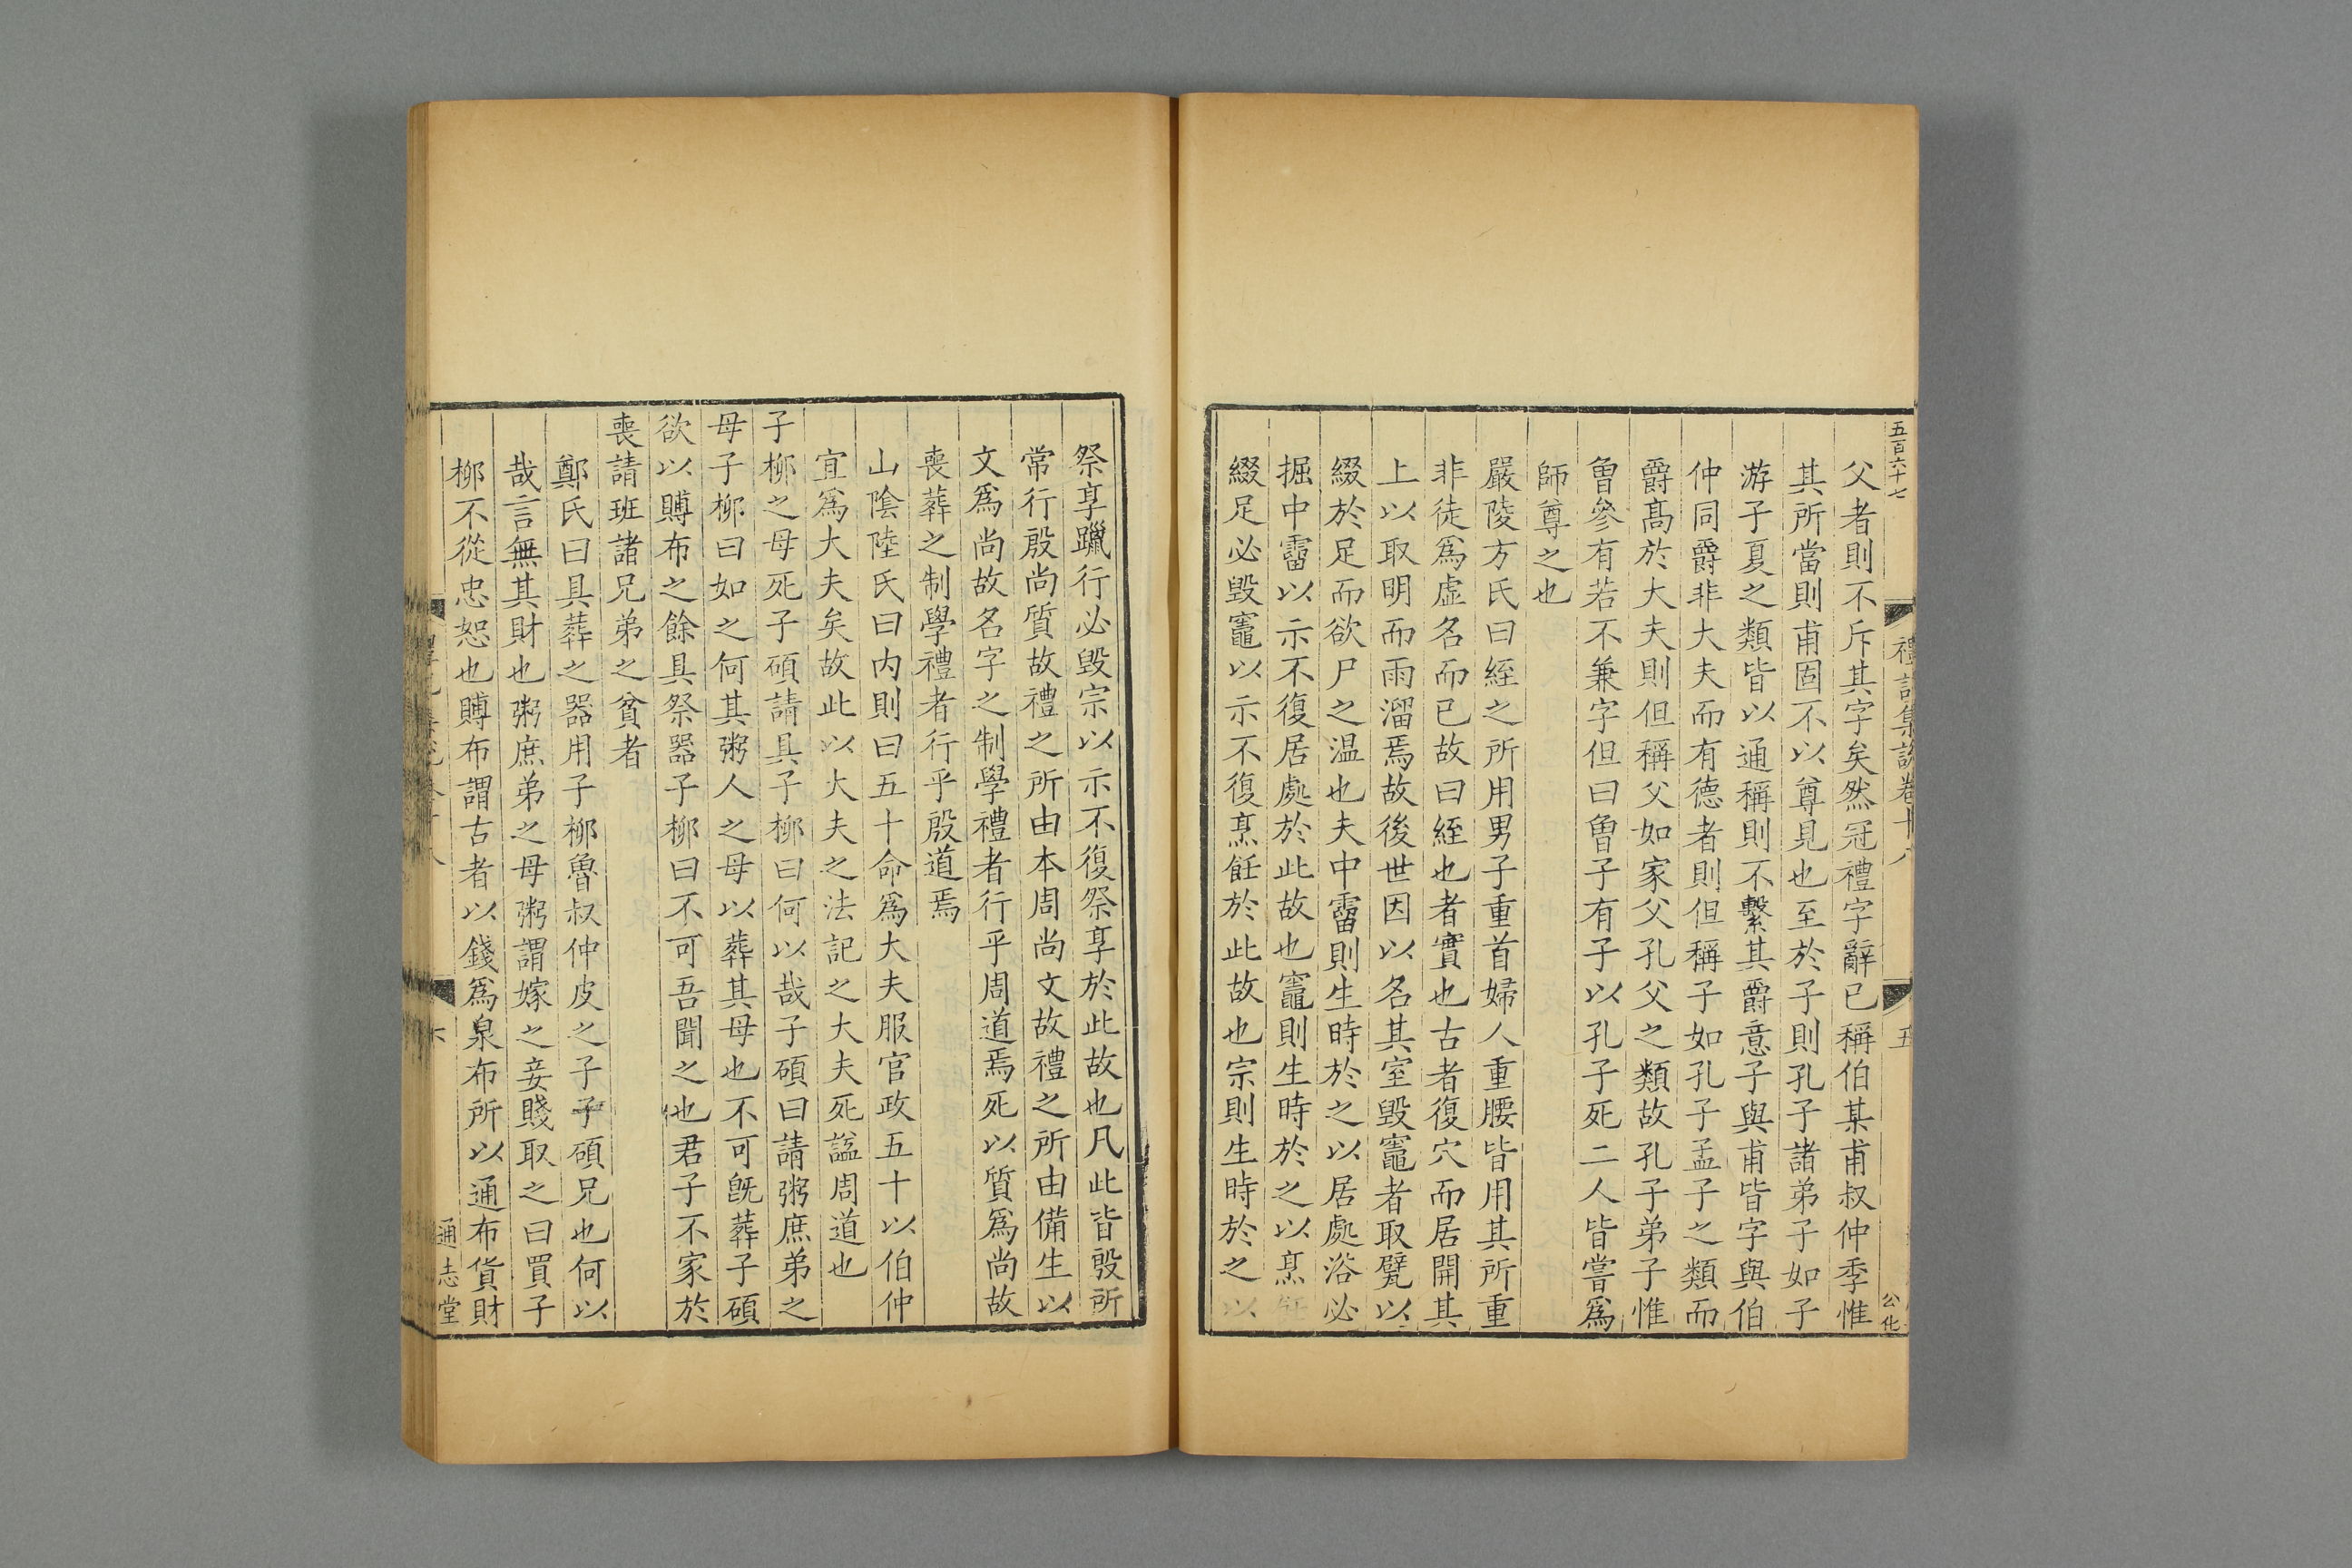 五百六十七
禮記集說卷十八
五
公化
父者則不斥其字矣然冠禮字辭已稱伯某甫叔仲季惟
其所當則甫固不以尊見也至於子則孔子諸弟子如子
游子夏之類皆以通稱則不繫其爵意子與甫皆字與伯
仲同爵非大夫而有德者則但稱子如孔子孟子之類而
爵髙於大夫則但稱父如家父孔父之類故孔子弟子惟
曾參有若不兼字但曰曾子有子以孔子死二人皆嘗爲
師尊之也
嚴陵方氏曰絰之所用男子重首婦人重腰皆用其所重
非徒爲虛名而已故曰絰也者實也古者復穴而居開其
上以取明而雨溜焉故後世因以名其室毀竈者取甓以
綴於足而欲尸之温也夫中霤則生時於之以居處浴必
掘中霤以示不復居處於此故也竈則生時於之以烹飪
綴足必毀竈以示不復烹飪於此故也宗則生時於之以
祭享躐行必毀宗以示不復祭享於此故也凡此皆殷所
常行殷尚質故禮之所由本周尚文故禮之所由備生以
文爲尚故名字之制學禮者行乎周道焉死以質爲尚故
喪葬之制學禮者行乎殷道焉
山陰陸氏曰内則曰五十命爲大夫服官政五十以伯仲
宜爲大夫矣故此以大夫之法記之大夫死諡周道也
子栁之母死子碩請具子栁曰何以哉子碩曰請粥庶弟之
母子栁曰如之何其粥人之母以葬其母也不可旣葬子碩
欲以賻布之餘具祭器子栁曰不可吾聞之也君子不家於
喪請班諸兄弟之貧者
鄭氏曰具葬之器用子栁魯叔仲皮之子子碩兄也何以
哉言無其財也粥庶弟之母粥謂嫁之妾賤取之曰買子
栁不從忠恕也賻布謂古者以錢爲泉布所以通布貨財
六
通志堂